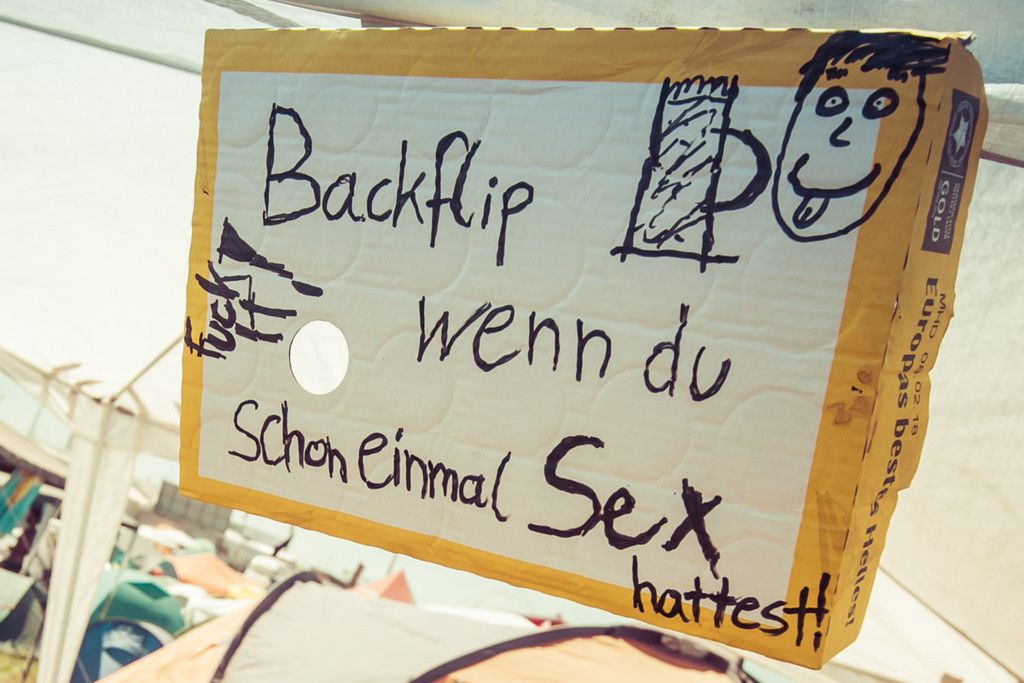 Backflip
wenn du
schon einmal Sex
hattest!
fuck
it!
GOLD
MHD 09.02.18
Europas bestes Helles!